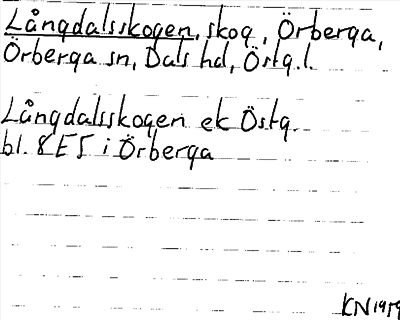 Långdalsskogen, skog, Örberga,
Örberga sn, Dals hd, Östg.l.
Långdalsskogen ek Östg.
bl. 8 E5 i Örberga
KN 1979